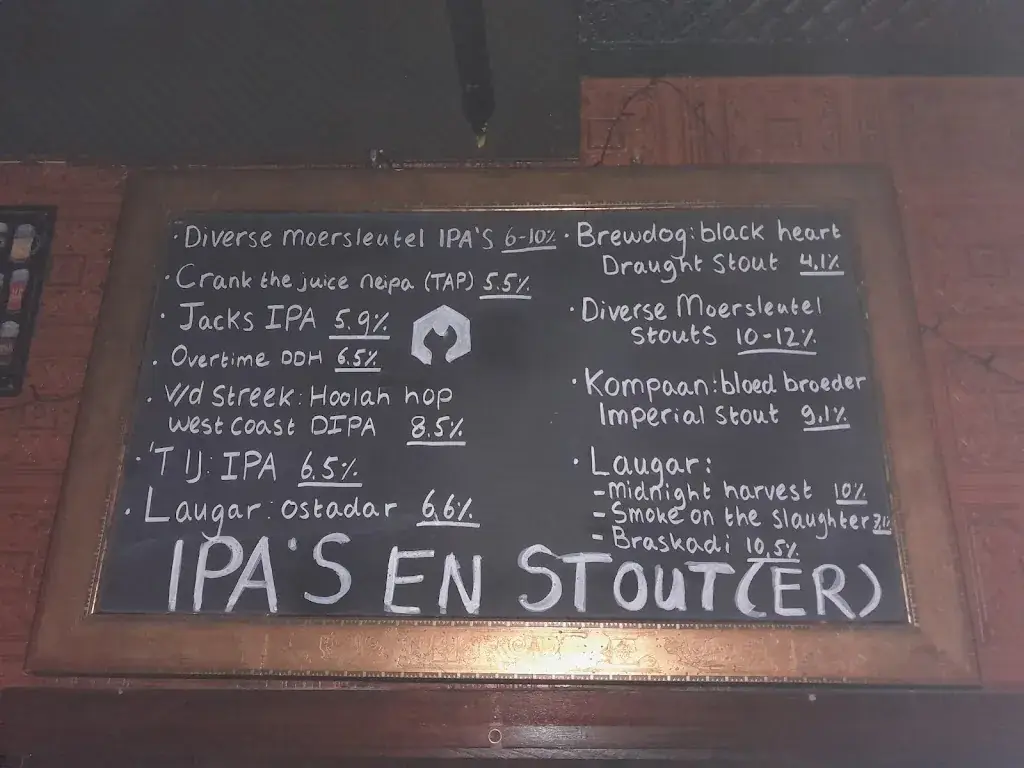 · Diverse moersleutel IPA'S 6-10%
· Crank the juice neipa (TAP) 5.5%
· Jacks IPA 5.9%
· Overtime DDH 6.5%
· V/d Streek: Hoolah hop
west coast DIPA 8.5%
· 'T IJ: IPA 6.5%
· Laugar: Ostadar 6,6%
· Brewdog: black heart
Draught Stout 4,1%
· Diverse Moersleutel
Stouts 10-12%
· Kompaan: bloed broeder
Imperial Stout 9,1%
· Laugar:
- Midnight harvest 10%
- Smoke on the slaughter
- Braskadi 10,5%
IPA'S EN STOUT(ER)